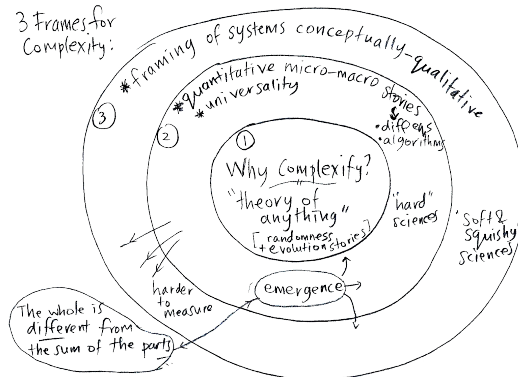 3 Frames for
Complexity:
*framing of systems conceptually-qualitative
③
*quantitative micro-macro stories
*universality
②
• diffeqs
• algorithms
①
Why Complexify?
"theory of
anything"
[randomness
+ evolution stories]
"hard"
sciences
"soft &
squishy
sciences
harder
to
measure
emergence
The whole is
different from
the sum of the parts